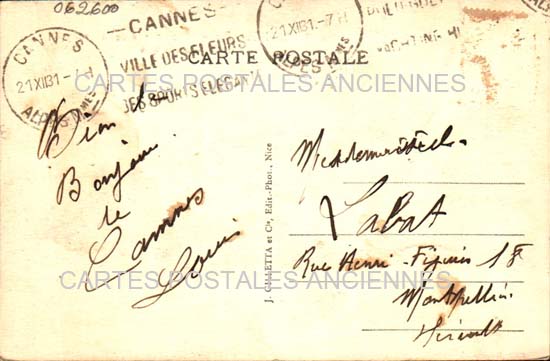 062600
CANNES
21XII31.-7H
ALPES MMES
—CANNES—
VILLE DES FLEURS
DES SPORTS ELEGANTS
CANNES
21XII31.-7H
ALPES MMES
CARTE POSTALE
CARTES POSTALES ANCIENNES
Bien le
Bonjour
de
Cannes
Louis
J. GILLETTA et Cie, Edit.-Phot., Nice
Mademoiselle
Labat
Rue Henri-
Montpellier
Hérault
CARTES POSTALES ANCIENNES